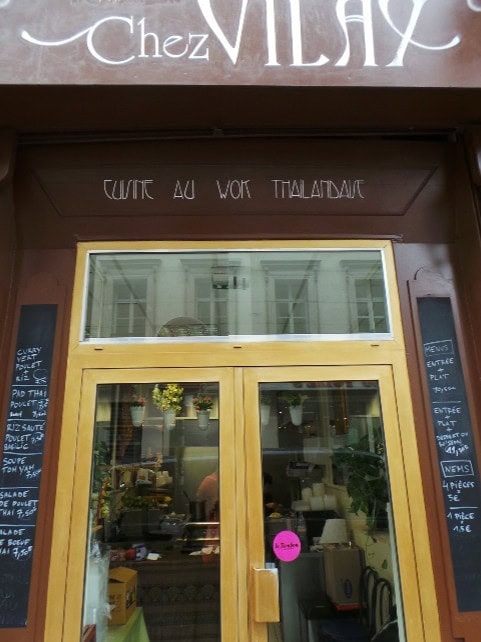 Chez VILAY
CUISINE AU WOK THAILANDAISE
CURRY
VERT
POULET
+
RIZ
PAD THAI
POULET
RIZ SAUTÉ
POULET
BASILIC
SOUPE
TOM YAM
SALADE
DE POULET
THAI 7,50€
SALADE
DE BOEUF
THAI 7,50€
MENUS
ENTRÉE
+
PLAT
ENTRÉE
+
PLAT
+
DESSERT OU
BOISSON
NEMS
4 PIÈCES
5€
1 PIÈCE
1,5€